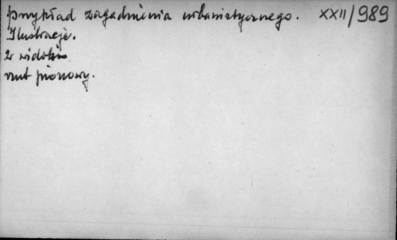 przykład zagadnienia urbanistycznego. XXII/989
Ilustracje.
2 widoki
rzut pionowy.